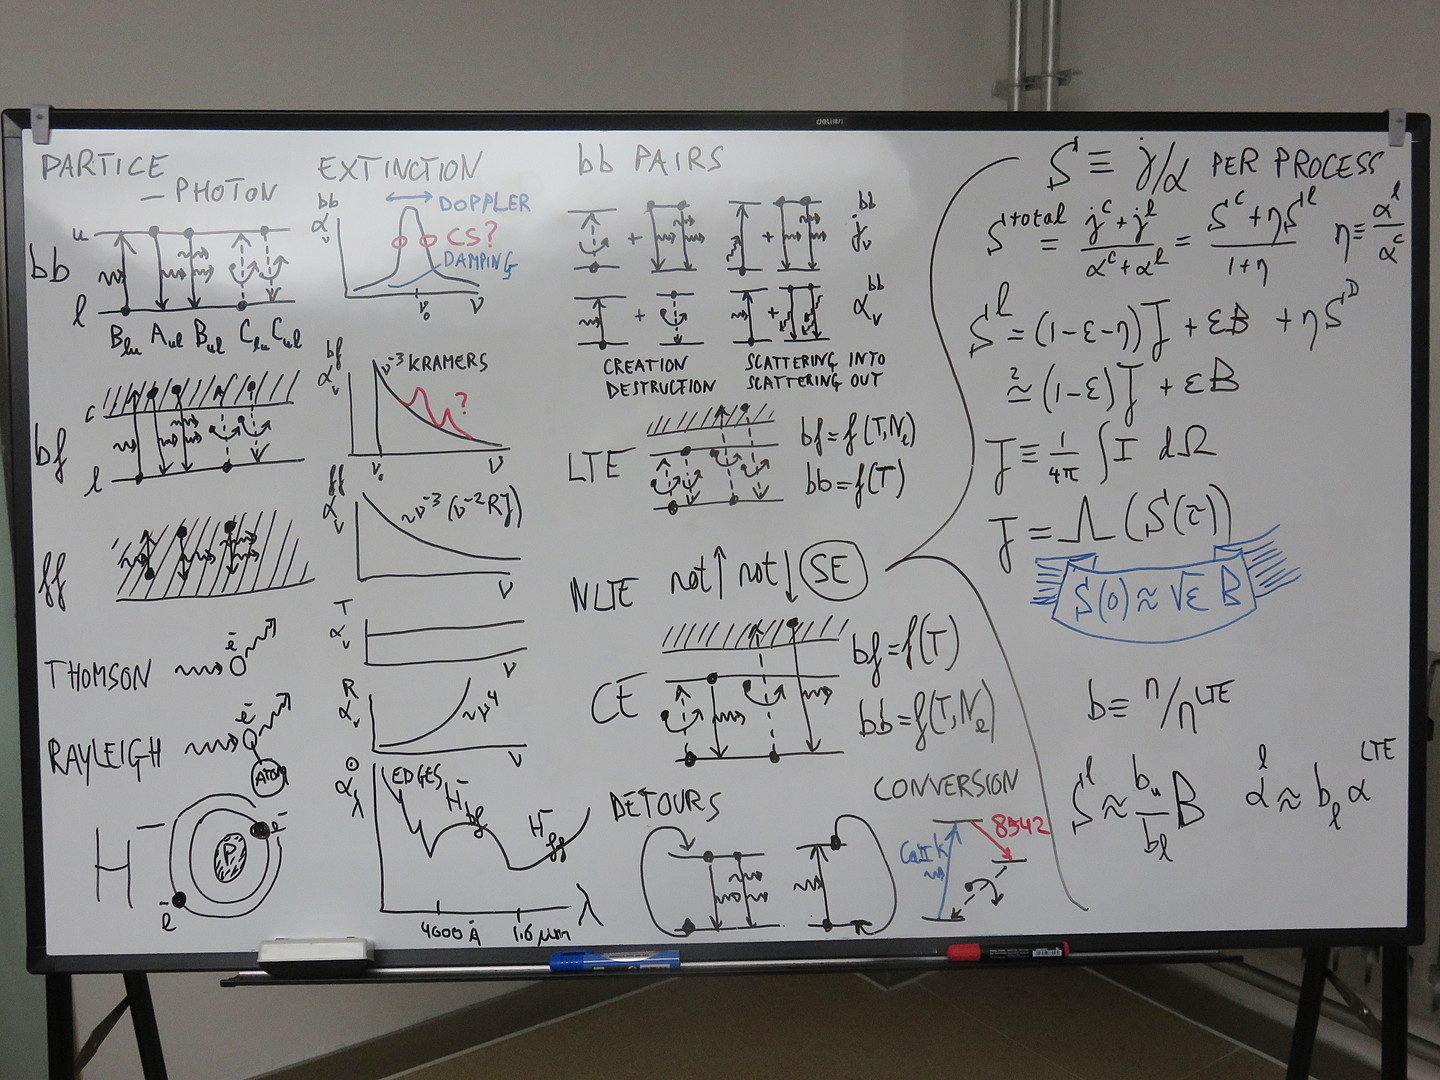 deli
PARTICE
– PHOTON
bb
u
l
B_lu A_ul B_ul C_lu C_ul
bf
c
l
ff
THOMSON
e⁻
RAYLEIGH
e⁻
ATOM
H⁻
P
e⁻
e⁻
EXTINCTION
α_ν^bb
DOPPLER
CS?
DAMPING
ν₀
ν
α_ν^bf
ν⁻³ KRAMERS
?
ν₀
ν
α_ν^ff
~ν⁻³ (ν⁻² RJ)
ν
α_ν^T
ν
α_ν^R
~ν⁴
ν
α_λ^O
EDGES
H⁻_bf
H⁻_ff
λ
4000 Å
1.6 μm
bb PAIRS
+
+
j_ν^bb
+
+
α_ν^bb
CREATION
DESTRUCTION
SCATTERING INTO
SCATTERING OUT
LTE
bf = f(T,N_e)
bb = f(T)
NLTE
not ↑ not ↓ SE
CE
bf = f(T)
bb = f(T,N_e)
DETOURS
CONVERSION
CaII K
8542
S ≡ j/α PER PROCESS
S^total = (j^c + j^l)/(α^c + α^l) = (S^c + ηS^l)/(1+η) η ≡ α^l/α^c
S^l = (1-ε-η)J + εB + ηS^D
≈? (1-ε)J + εB
J ≡ 1/4π ∫I dΩ
J = Λ(S(τ))
S(0) ≈ √ε B
b ≡ n/n^LTE
S^l ≈ b_u/b_l B α^l ≈ b_l α^LTE